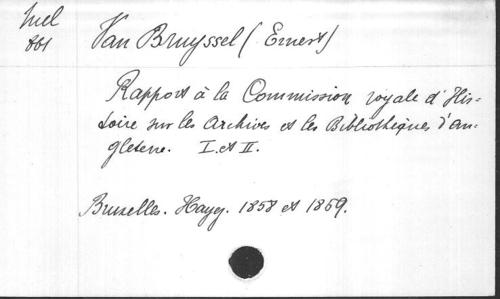 Van Bruyssel (Ernest)
Rapport à la Commission royale d'His-
toire sur les Archives et les Bibliothèques d'an-
gleterre. I. et II.
Bruxelles. Hayez. 1858 et 1869.